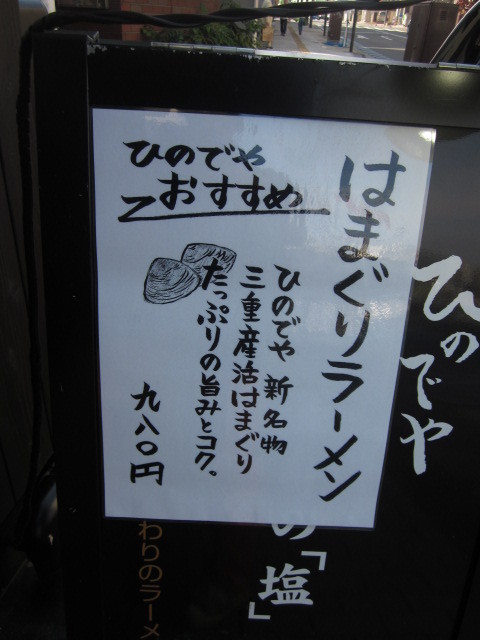 ひのでや
おすすめ
はまぐりラーメン
ひのでや 新名物
三重産活はまぐり
たっぷりの旨みとコク。
九八〇円
ひのでや
の「塩」
わりのラーメ